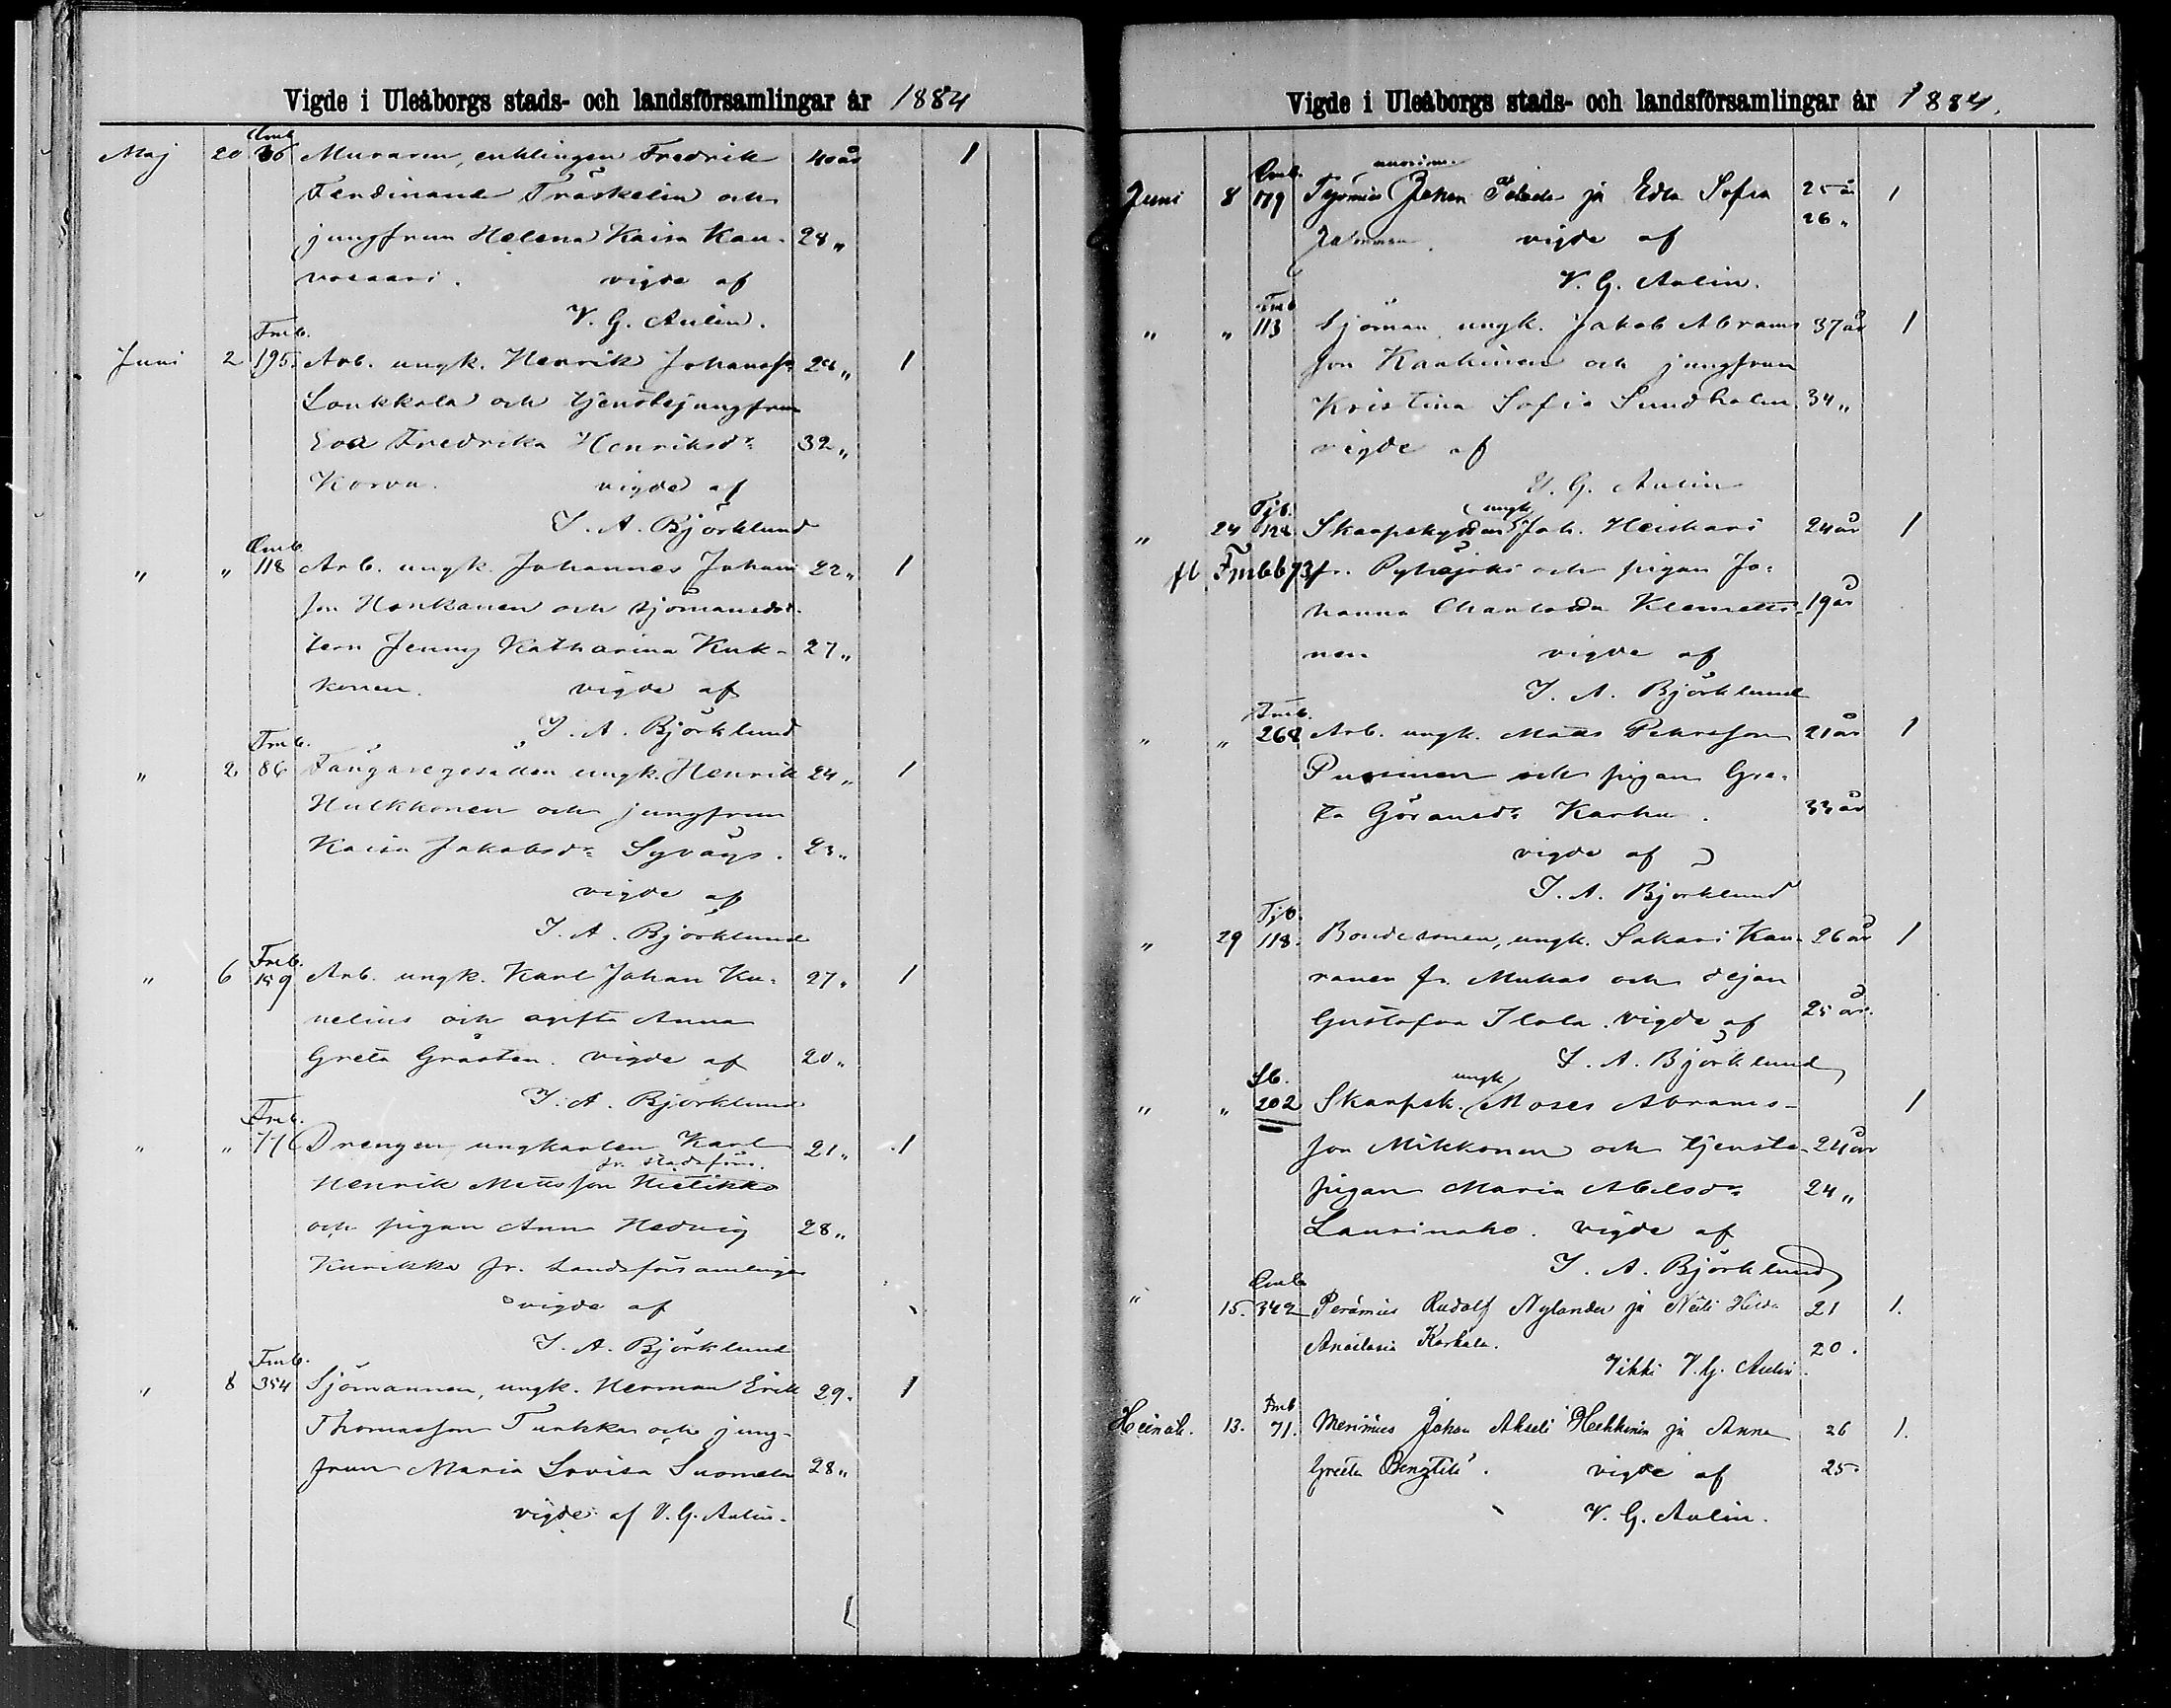 Vigde i Uleåborgs stads- och landsförsamlingar år 1884
Maj 20 36 Muraren, enklingen Fredrik 40 år 1
Ferdinand Träskelin och
jungfrun Helena Kaisa Kau- 28 "
vosaari. vigde af
V. G. Aulin.
Fmb.
Juni 2 195 Arb. ungk. Henrik Johanss:n 24 " 1
Loukkola och tjenstejungfrun
Eva Fredrika Henriksd:r 32 "
Korva. vigde af
I. A. Björklund
" " 118 Arb. ungk. Johannes Johans 22 " 1
son Honkanen och sjömansdot-
tern Jenny Katharina Kuk- 27 "
konen. vigde af
I. A. Björklund
Fmb.
" 2 86 ungk. Henrik 24 " 1
Hulkkonen och jungfrun
Kaisa Jakobsd:r Syväys. 23 "
vigde af
I. A. Björklund
Fmb.
" 6 159 Arb. ungk. Karl Johan Ku- 27 " 1
nelius och ogifta Anna
Greta Gråsten. vigde af 20 "
I. A. Björklund
Fmb.
" " Drengen, ungkarlen Karl 21 " 1
fr. stadsförs.
Henrik Mattsson Hietikko
och pigan Anna Hedvig 28 "
Kurikka fr. Landsförsamlingen
vigde af
I. A. Björklund
Fmb.
" 8 354 Sjömannen, ungk. Herman Erik 29 " 1
Thomasson Turkka och jung-
frun Maria Lovisa Suomela 28 "
vigde af V. G. Aulin.
Vigde i Uleåborgs stads- och landsförsamlingar år 1884.
Juni 8 179 Työmies Johan ja Edla Sofia 25 år 1
26 "
vigde af
V. G. Aulin.
Fmb
" " 113 Sjöman, ungk. Jakob Abrams 37 år 1
son Kaakinen och jungfrun
Kristina Sofia Sundholm 34 "
vigde af
V. G. Aulin
Tjb. ungk
" 24 128 Skarpskytten Joh. Heiskari 24 år 1
Fmb 673 fr. Pyhäjoki och pigan Jo-
hanna Charlotta Klemetti- 19 år
nen vigde af
I. A. Björklund
Fmb.
" " 268 Arb. ungk. Matts Pehrsson 21 år 1
Pussinen och pigan Gre-
ta Göransd:r Karhu. 33 år
vigde af
I. A. Björklund
Tjb.
" 29 118. Bondesonen, ungk. Sakari Kau- 26 år 1
ranen fr. Muhos och dejan
Gustafva Ilola. vigde af 25 år.
I. A. Björklund
Sb. ungk
" " 202 Skarpsk. Moses Abrams- 1
son Mikkonen och tjenste- 24 år
pigan Maria Abelsd:r 24 "
Laurinaho. vigde af
I. A. Björklund
" 15. 342 Perämies Rudolf Nylander ja Neiti Hilda 21 1.
Anastasia Karhula. 20.
Vihki V. G. Aulin.
Fmb
Heinäk. 13. 71. Merimies Johan Akseli Heikkinen ja Anna 26 1.
Greeta Bengtili. vigde af 25.
V. G. Aulin.